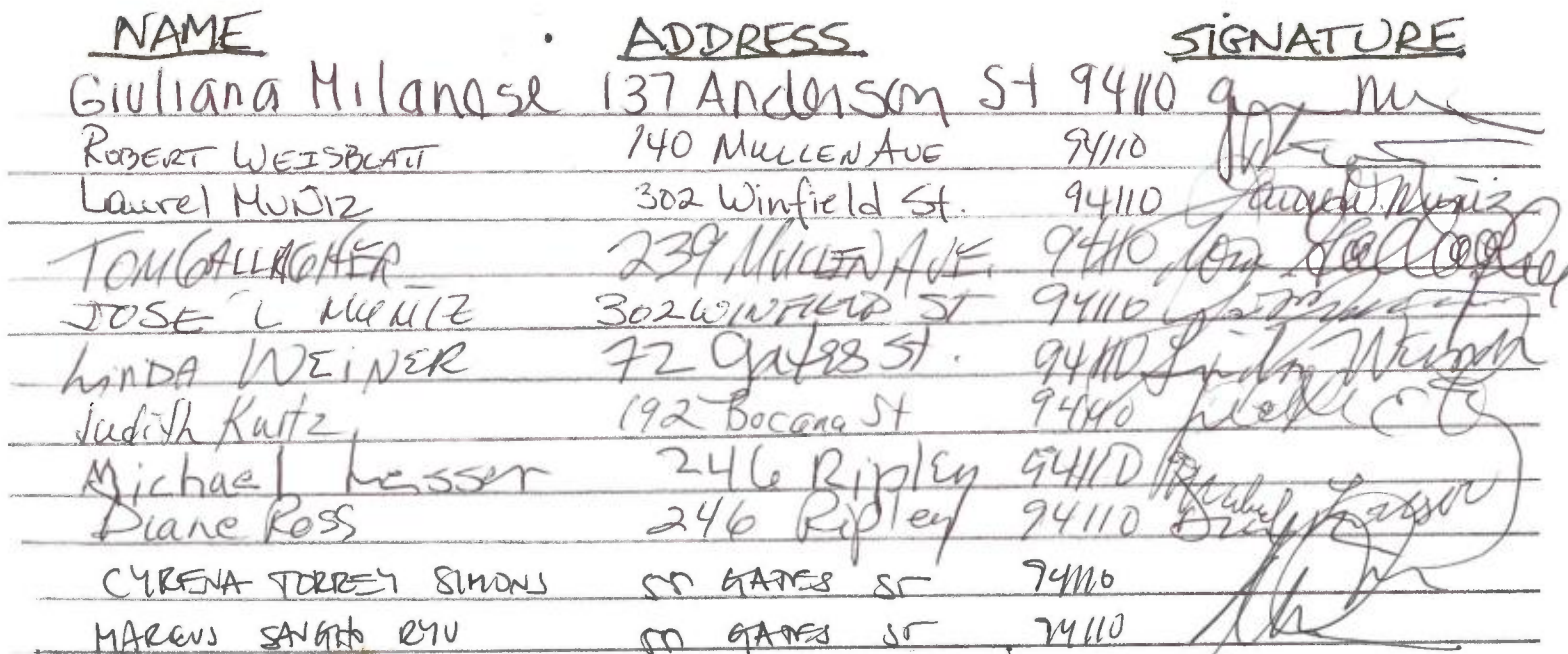 NAME ADDRESS SIGNATURE
Giuliana Milanese 137 Anderson St 94110
ROBERT WEISBLATT 140 MULLEN AVE 94110
Laurel MUÑIZ 302 Winfield St. 94110 Laurel Muñiz
TOM GALLAGHER 239 MULLEN AVE. 94110 Tom Gallagher
JOSE L MUNIZ 302 WINFIELD ST 94110
LINDA WEINER 72 Gates St. 94110 Linda Weiner
Judith Kurtz 192 Bocana St 94110
Michael Lesser 246 Ripley 94110 Michael Lesser
Diane Ross 246 Ripley 94110
CYRENA TORREY SIMONS GATES ST 94110
MARCUS RYU GATES ST 94110